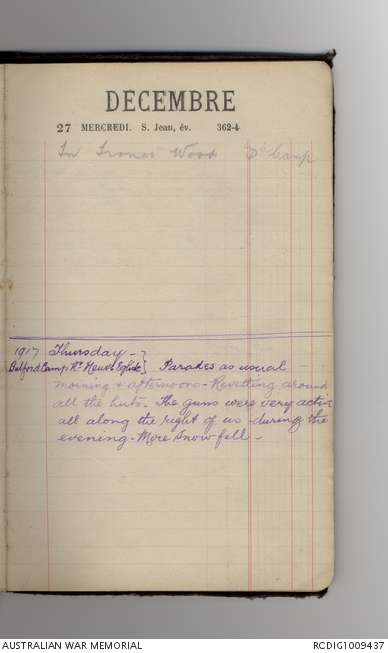 DÉCEMBRE
27 MERCREDI. S. Jean, év. 362-4
In Trones Wood D Camp
1917 Thursday -
Belford Camp Nr Neuve Eglise] Parades as usual
morning & afternoon - Revetting around
all the huts - The guns were very active
all along the right of us during the
evening - More Snow fell -
AUSTRALIAN WAR MEMORIAL RCDIG1009437